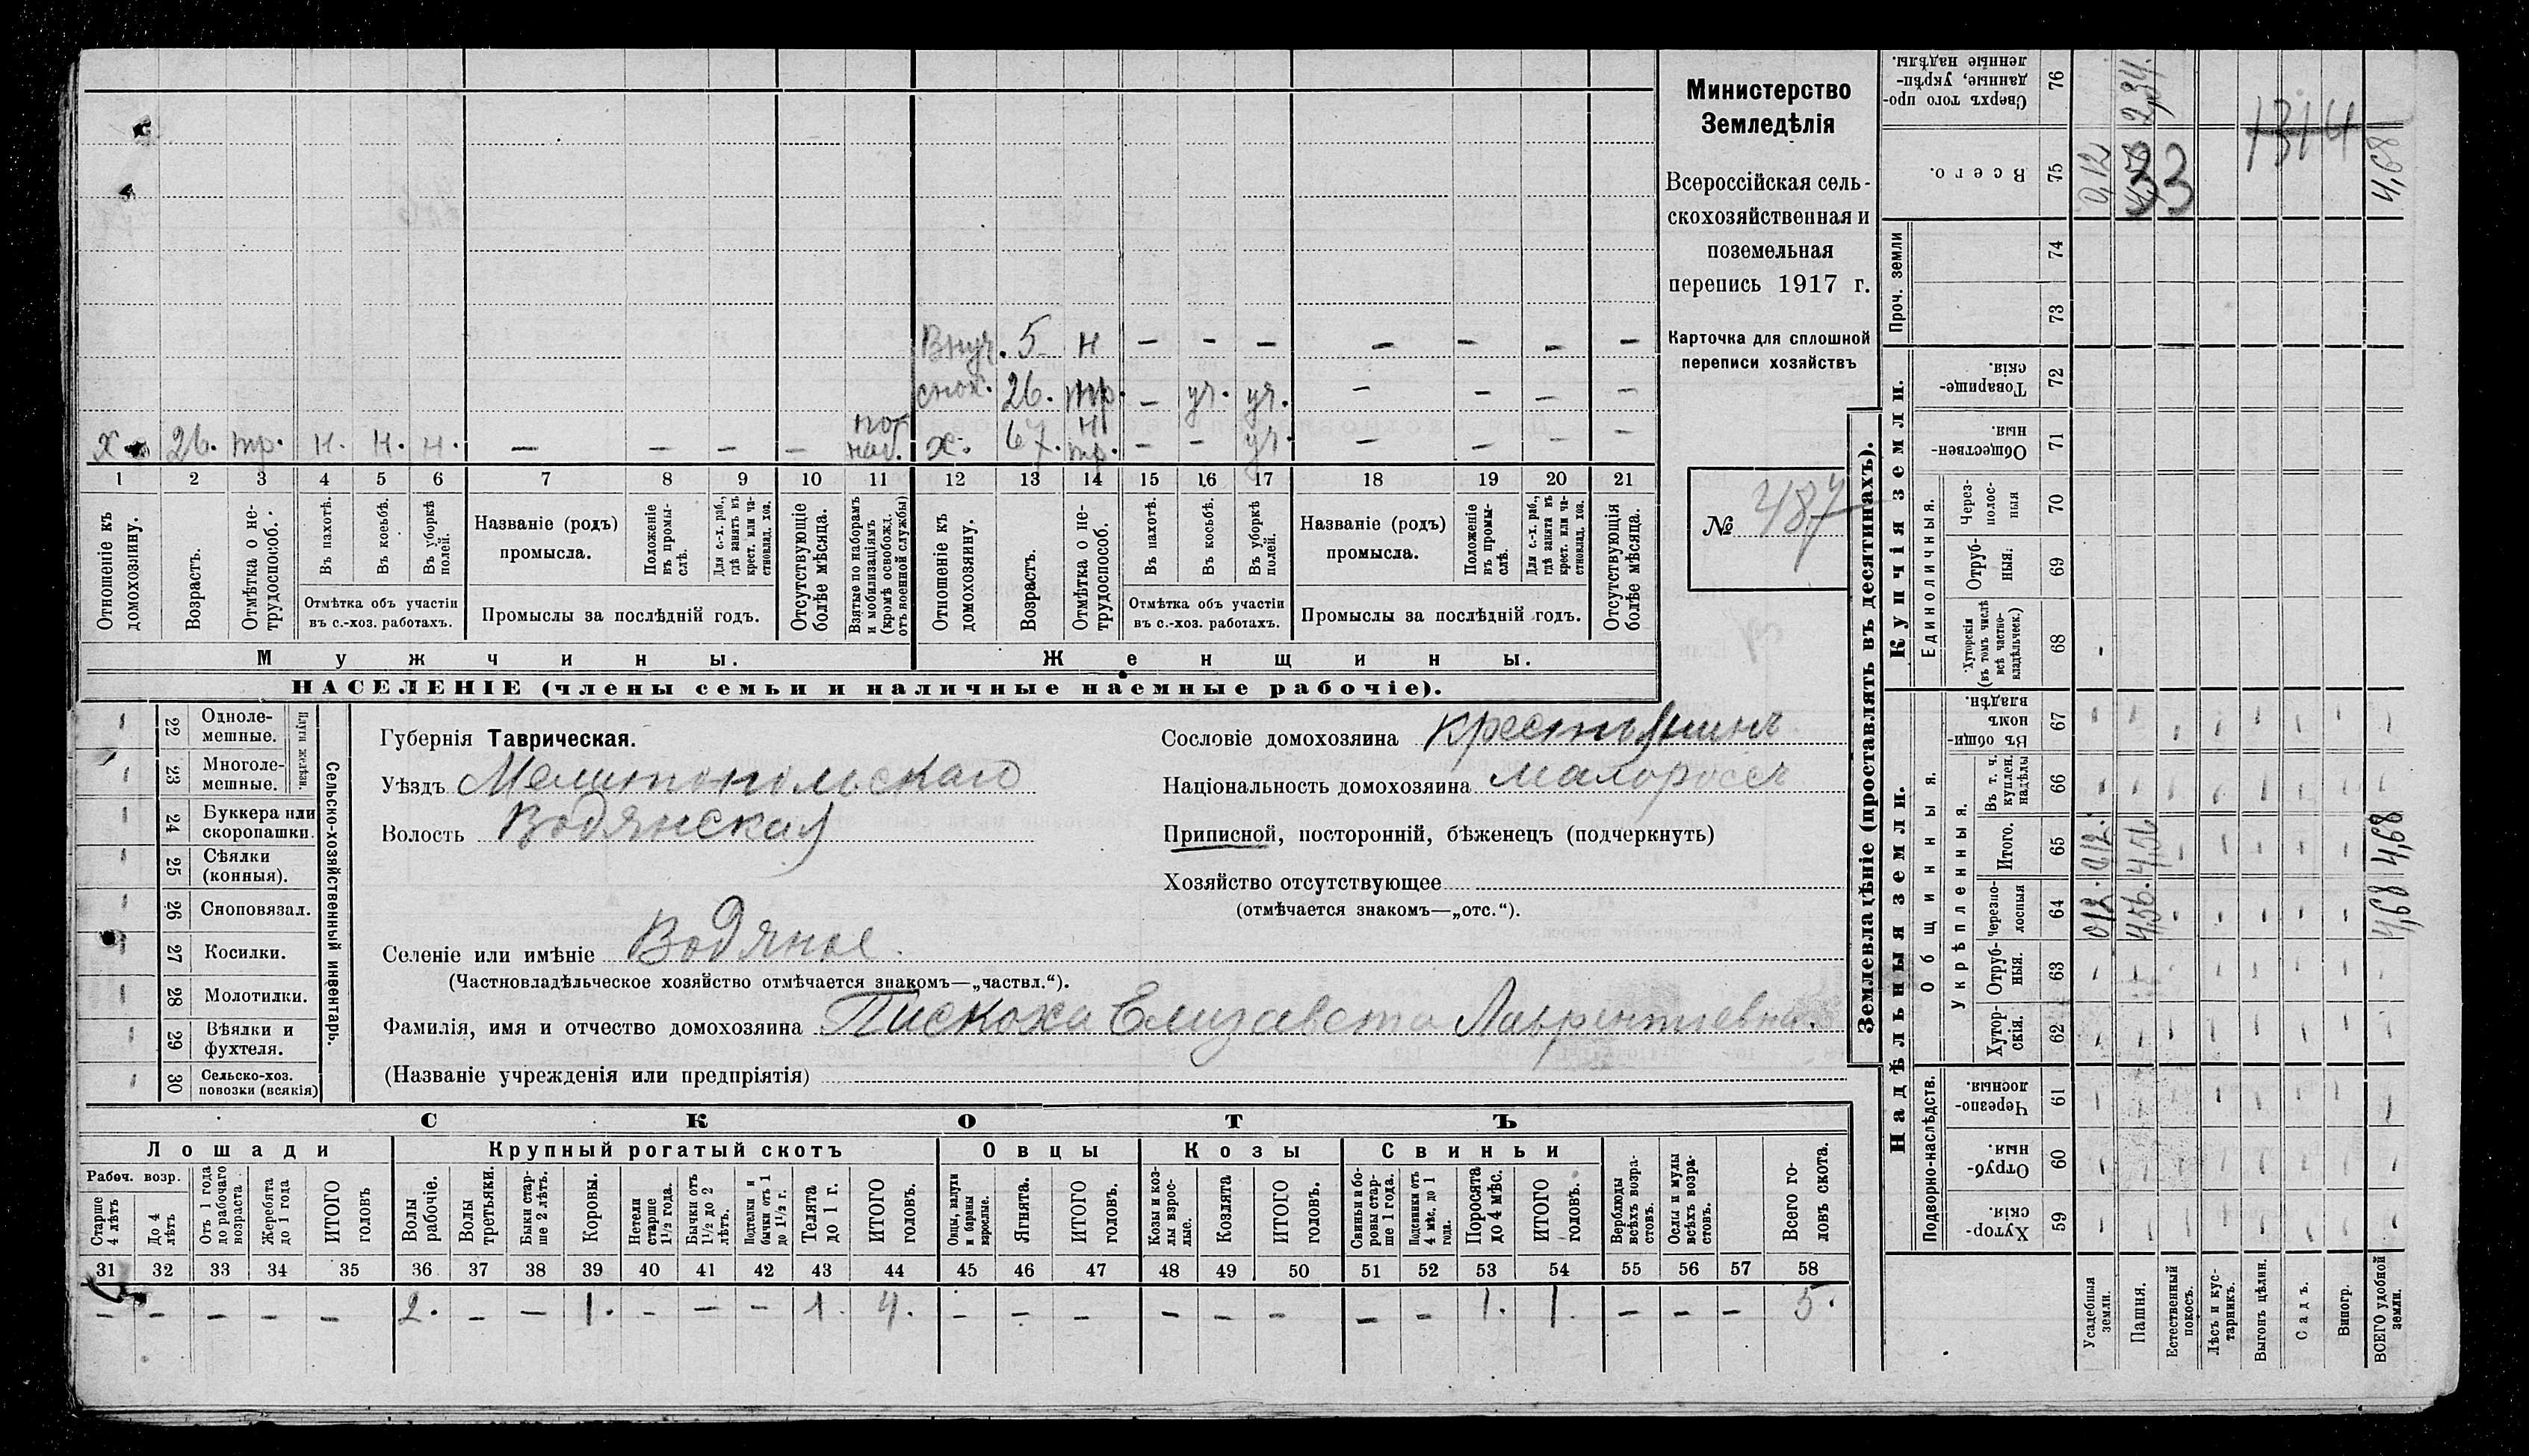 Министерство
Земледѣлія
Всероссійская сель-
скохозяйственная и
поземельная
перепись 1917 г.
Карточка для сплошной
переписи хозяйствъ
№ 487
Внуч. 5 н — — — — — — —
снох. 26. тр. — уч. уч. — — — —
х. 26. тр. н. н. н. — — — —
х. 67. н тр. — — уч — — — —
1 2 3 4 5 6 7 8 9 10 11 12 13 14 15 16 17 18 19 20 21
Отношеніе къ домохозяину.
Возрастъ.
Отмѣтка о не-трудоспособ.
Въ пахотѣ.
Въ косьбѣ.
Въ уборкѣ полей.
Отмѣтка объ участіи
въ с.-хоз. работахъ.
Названіе (родъ)
промысла.
Положеніе въ промы-слѣ.
Для с.-х. раб., гдѣ занятъ въ крест. или ча-стновлад. хоз.
Промыслы за послѣдній годъ.
Отсутствующіе болѣе мѣсяца.
Взятые по наборамъ и мобилизаціямъ (кромѣ освобожд. отъ военной службы)
Отношеніе къ домохозяину.
Возрастъ.
Отмѣтка о не-трудоспособ.
Въ пахотѣ.
Въ косьбѣ.
Въ уборкѣ полей.
Отмѣтка объ участіи
въ с.-хоз. работахъ.
Названіе (родъ)
промысла.
Положеніе въ промы-слѣ.
Для с.-х. раб., гдѣ занята въ крест. или ча-стновлад. хоз.
Промыслы за послѣдній годъ.
Отсутствующія болѣе мѣсяца.
Мужчины.
Женщины.
НАСЕЛЕНІЕ (члены семьи и наличные наемные рабочіе).
22 Одноле-мешные.
23 Многоле-мешные.
Плуги желѣзн.
24 Буккера или скоропашки.
25 Сѣялки (конныя).
26 Сноповязал.
27 Косилки.
28 Молотилки.
29 Вѣялки и фухтеля.
30 Сельско-хоз. повозки (всякія)
Сельско-хозяйственный инвентарь.
Губернія Таврическая.
Уѣздъ Мелитопольскаго
Волость Водянская
Селеніе или имѣніе Водяное.
(Частновладѣльческое хозяйство отмѣчается знакомъ—„частвл.“).
Фамилія, имя и отчество домохозяина Пискоха Елизавета Лаврентіевна.
(Названіе учрежденія или предпріятія)
Сословіе домохозяина крестьянинъ
Національность домохозяина малороссъ
Приписной, посторонній, бѣженецъ (подчеркнуть)
Хозяйство отсутствующее
(отмѣчается знакомъ—„отс.“).
СКОТЪ
Лошади
Крупный рогатый скотъ
Овцы
Козы
Свиньи
Рабоч. возр.
Старше 4 лѣтъ
До 4 лѣтъ
Отъ 1 года до рабочаго возраста
Жеребята до 1 года
ИТОГО головъ
Волы рабочіе.
Волы третьяки.
Быки стар-ше 2 лѣтъ.
Коровы.
Нетели старше 1½ года.
Бычки отъ 1½ до 2 лѣтъ.
Подтелки и бычки отъ 1 до 1½ г.
Телята до 1 г.
ИТОГО головъ.
Овцы, валухи и бараны взрослые.
Ягнята.
ИТОГО головъ.
Козы и коз-лы взрос-лые.
Козлята
ИТОГО головъ.
Свиньи и бо-ровы стар-ше 1 года.
Подсвинки отъ 4 мѣс. до 1 года.
Поросята до 4 мѣс.
ИТОГО головъ.
Верблюды всѣхъ возра-стовъ.
Ослы и мулы всѣхъ возра-стовъ.
Всего го-ловъ скота.
31 32 33 34 35 36 37 38 39 40 41 42 43 44 45 46 47 48 49 50 51 52 53 54 55 56 57 58
— — — — — 2. — — 1. — — — 1. 4. — — — — — — — — 1. 1. — — — 5.
Землевладѣніе (проставлять въ десятинахъ).
Надѣльныя земли.
Купчія земли.
Проч. земли
Подворно-наслѣдств.
Общинныя.
Укрѣпленныя.
Единоличныя.
59 Хутор-скія.
60 Отруб-ныя.
61 Черезпо-лосныя.
62 Хутор-скія.
63 Отруб-ныя.
64 Черезпо-лосныя
65 Итого.
66 Въ т. ч. куплен. надѣлы
67 Въ общин-номъ владѣн.
68 Хуторскія (въ томъ числѣ всѣ частно-владѣльческ.)
69 Отруб-ныя.
70 Через-полос-ныя
71 Обществен-ныя.
72 Товарище-скія.
73
74
75 Всего.
76 Сверхъ того про-данные, укрѣп-ленные надѣлы.
Усадебныя земли. 0,12. 0,12. 0,12
Пашня. 4,56. 4,56. 2,34.
Естественный покосъ.
Лѣсъ и кус-тарникъ.
Выгонъ цѣлин.
Садъ.
Виногр.
ВСЕГО удобной земли. 4,68 4,68 4,68
33
1314